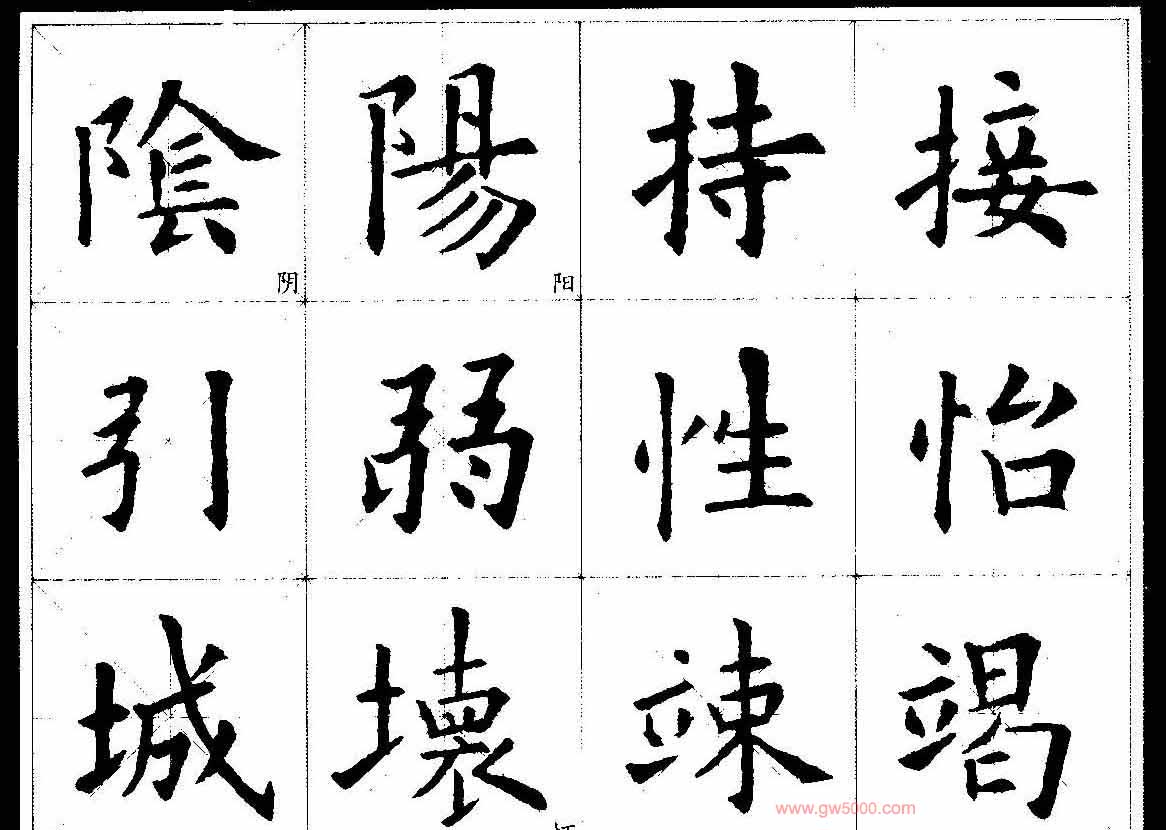 陰陽持接
阴 阳
引弱性怡
城壞竦竭
www.gw5000.com